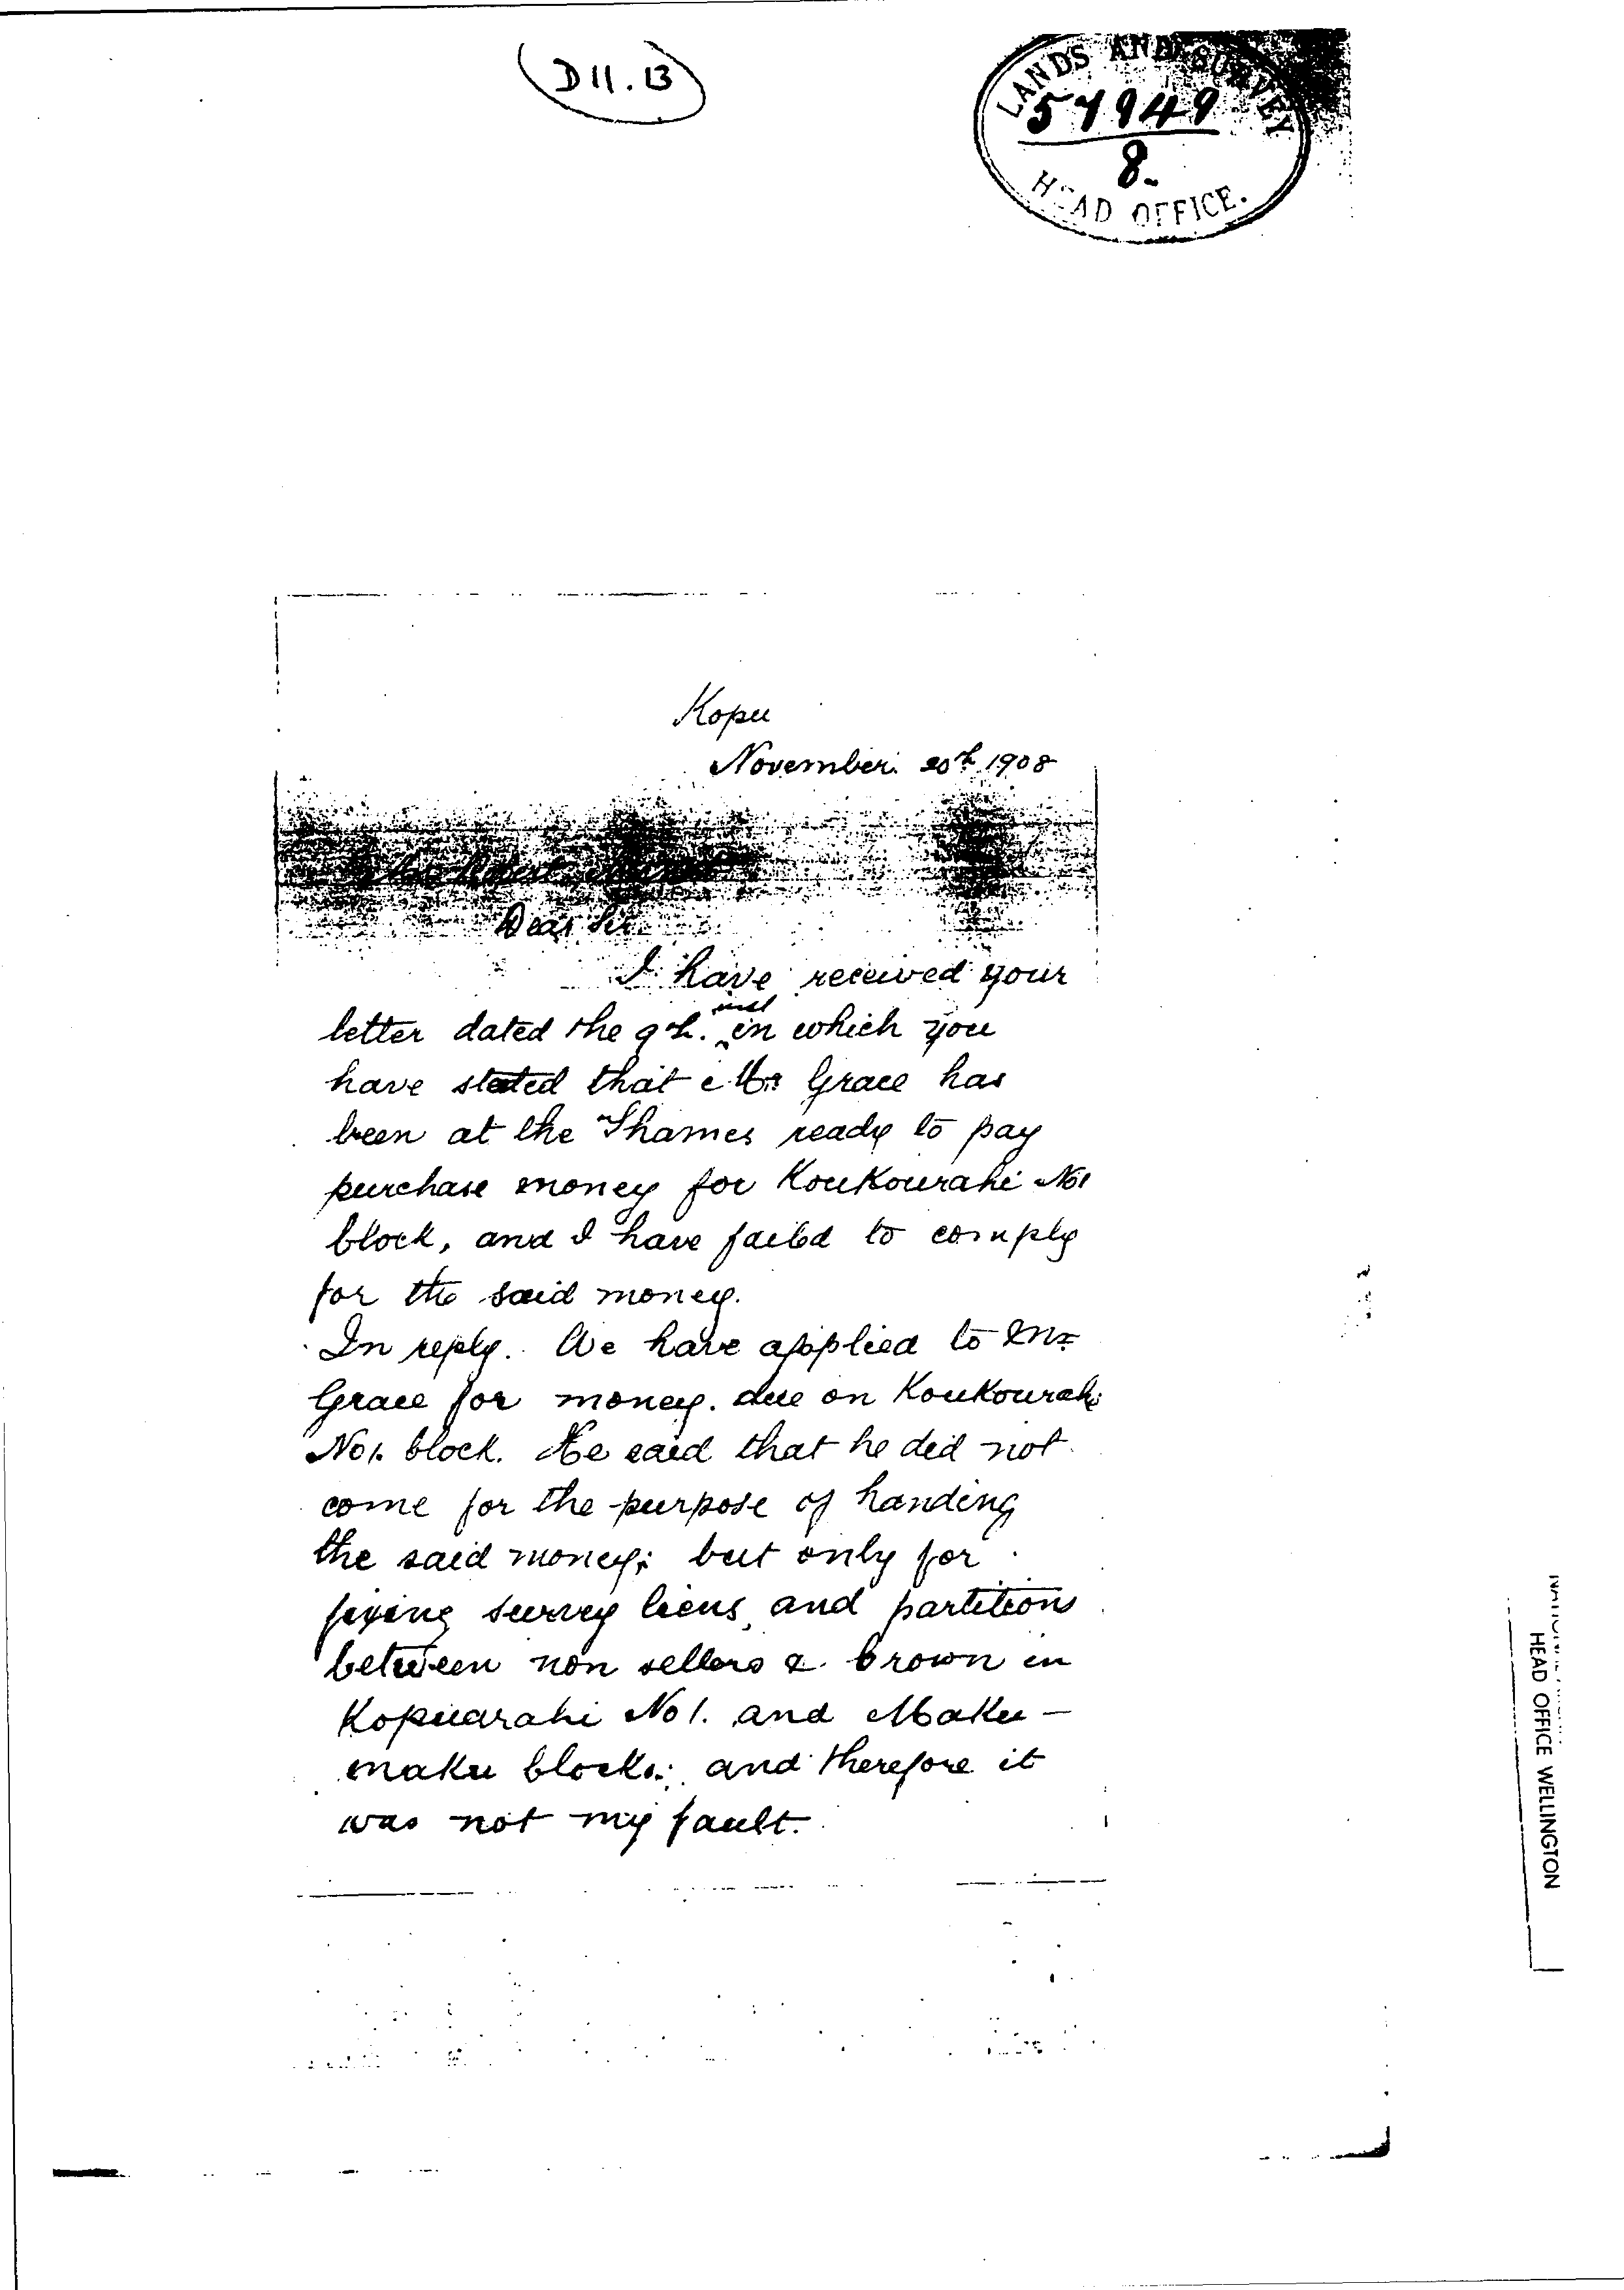 D11.13
LANDS AND SURVEY
57949
8.
HEAD OFFICE.
Kopu
November. 20th 1908
Dear Sir
I have received your
letter dated the 9th. inst in which you
have stated that Mr Grace has
been at the Thames ready to pay
purchase money for Koukourahi No1
block, and I have faild to comply
for the said money.
In reply. We have applied to Mr
Grace for money. due on Koukourahi
No1. block. He said that he did not
come for the purpose of handing
the said money; but only for
fixing survey liens, and partitions
between non sellers & Crown in
Kopuarahi No1. and Maku-
maku blocks; and therefore it
was not my fault.
HEAD OFFICE WELLINGTON